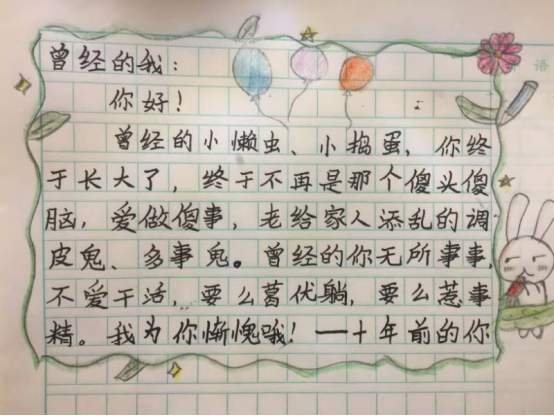 曾经的我：
你好！
曾经的小懒虫、小捣蛋，你终
于长大了，终于不再是那个傻头傻
脑，爱做傻事，老给家人添乱的调
皮鬼、多事鬼。曾经的你无所事事，
不爱干活，要么葛优躺，要么惹事
精。我为你惭愧哦！一十年前的你
语